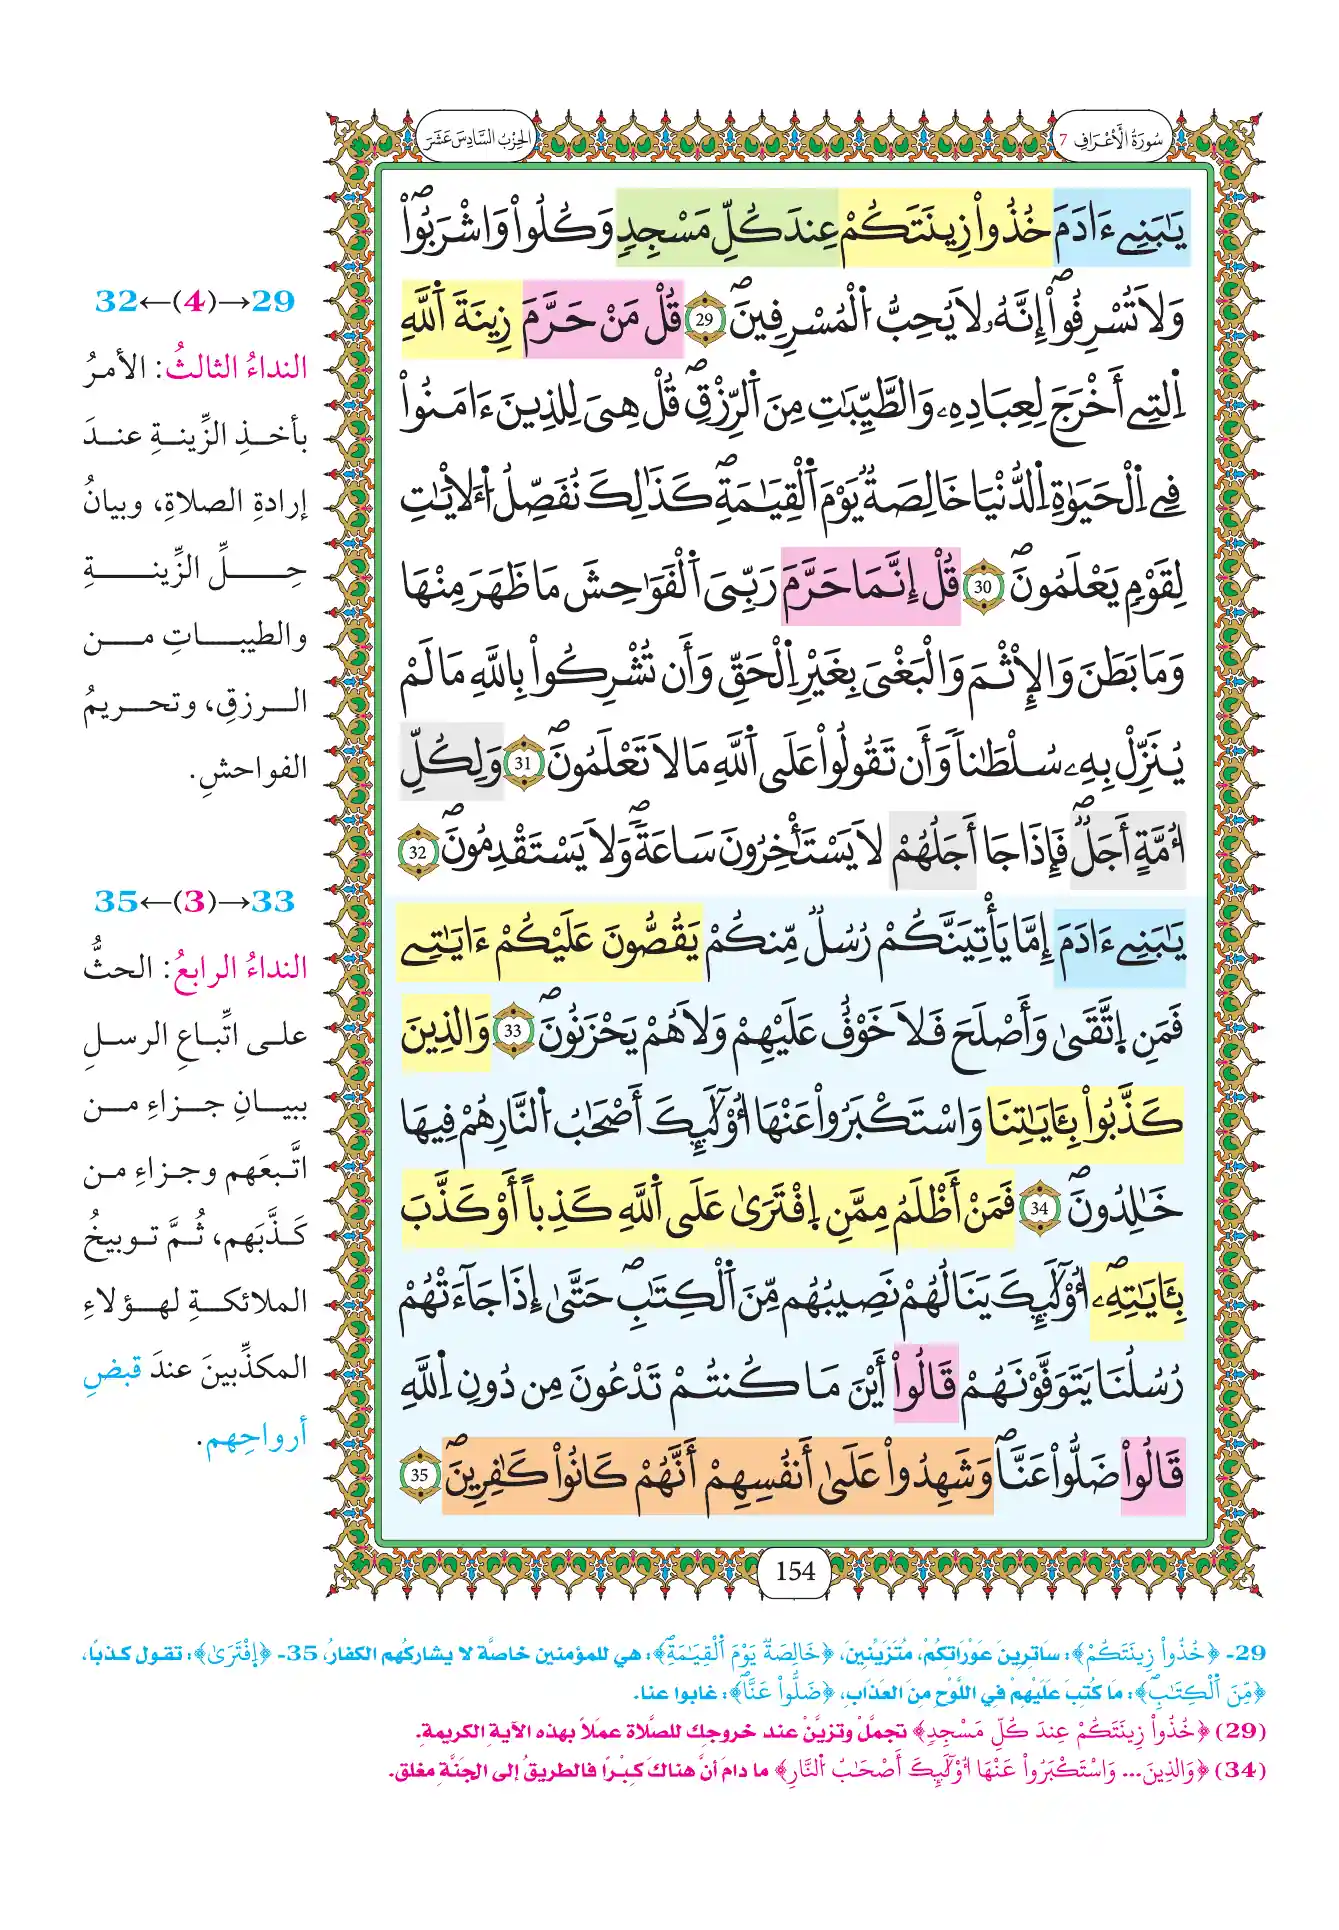 سُورَةُ الْأَعْرَافِ 7
الحِزْبُ السَّادِسَ عَشَرَ
يَٰبَنِےٓ ءَادَمَ خُذُواْ زِينَتَكُمْ عِندَ كُلِّ مَسْجِدٖ وَكُلُواْ وَاشْرَبُواْۖ
وَلَا تُسْرِفُوٓاْۖ إِنَّهُۥ لَا يُحِبُّ اُ۬لْمُسْرِفِينَۖ 29 قُلْ مَنْ حَرَّمَ زِينَةَ اَ۬للَّهِ
اِ۬لتِےٓ أَخْرَجَ لِعِبَادِهِۦ وَالطَّيِّبَٰتِ مِنَ اَ۬لرِّزْقِۖ قُلْ هِيَ لِلذِينَ ءَامَنُواْ
فِے اِ۬لْحَيَوٰةِ اِ۬لدُّنْيَا خَالِصَةٞ يَوْمَ اَ۬لْقِيَٰمَةِۖ كَذَٰلِكَ نُفَصِّلُ اُ۬لْأٓيَٰتِ
لِقَوْمٖ يَعْلَمُونَۖ 30 قُلْ إِنَّمَا حَرَّمَ رَبِّيَ اَ۬لْفَوَٰحِشَ مَا ظَهَرَ مِنْهَا
وَمَا بَطَنَ وَالْإِثْمَ وَالْبَغْيَ بِغَيْرِ اِ۬لْحَقِّ وَأَن تُشْرِكُواْ بِاللَّهِ مَا لَمْ
يُنَزِّلْ بِهِۦ سُلْطَٰناٗ وَأَن تَقُولُواْ عَلَي اَ۬للَّهِ مَا لَا تَعْلَمُونَۖ 31 وَلِكُلِّ
أُمَّةٍ أَجَلٞۖ فَإِذَا جَا أَجَلُهُمْ لَا يَسْتَأْخِرُونَ سَاعَةٗۖ وَلَا يَسْتَقْدِمُونَۖ 32
يَٰبَنِےٓ ءَادَمَ إِمَّا يَأْتِيَنَّكُمْ رُسُلٞ مِّنكُمْ يَقُصُّونَ عَلَيْكُمْ ءَايَٰتِے
فَمَنِ اِ۪تَّقَىٰ وَأَصْلَحَ فَلَا خَوْفٌ عَلَيْهِمْ وَلَا هُمْ يَحْزَنُونَۖ 33 وَالذِينَ
كَذَّبُواْ بِـَٔايَٰتِنَا وَاسْتَكْبَرُواْ عَنْهَآ أُوْلَٰٓئِكَ أَصْحَٰبُ اُ۬لنَّارِ هُمْ فِيهَا
خَٰلِدُونَۖ 34 فَمَنْ أَظْلَمُ مِمَّنِ اِ۪فْتَرَىٰ عَلَي اَ۬للَّهِ كَذِباً أَوْ كَذَّبَ
بِـَٔايَٰتِهِۦٓۖ أُوْلَٰٓئِكَ يَنَالُهُمْ نَصِيبُهُم مِّنَ اَ۬لْكِتَٰبِۖ حَتَّىٰٓ إِذَا جَآءَتْهُمْ
رُسُلُنَا يَتَوَفَّوْنَهُمْ قَالُوٓاْ أَيْنَ مَا كُنتُمْ تَدْعُونَ مِن دُونِ اِ۬للَّهِ
قَالُواْ ضَلُّواْ عَنَّاۖ وَشَهِدُواْ عَلَىٰٓ أَنفُسِهِمْ أَنَّهُمْ كَانُواْ كَٰفِرِينَۖ 35
154
29→(4)←32
النداءُ الثالثُ: الأمرُ
بأخذِ الزِّينةِ عندَ
إرادةِ الصلاةِ، وبيانُ
حِلِّ الزِّينةِ
والطيباتِ من
الرزقِ، وتحريمُ
الفواحشِ.
33→(3)←35
النداءُ الرابعُ: الحثُّ
على اتِّباعِ الرسلِ
ببيانِ جزاءِ من
اتَّبعَهم وجزاءِ من
كَذَّبَهم، ثُمَّ توبيخُ
الملائكةِ لهؤلاءِ
المكذِّبينَ عندَ قبضِ
أرواحِهم.
29- ﴿خُذُواْ زِينَتَكُمْ﴾: سَاتِرِينَ عَوْرَاتِكُمْ، مُتَزَيِّنِينَ، ﴿خَالِصَةٞ يَوْمَ اَ۬لْقِيَٰمَةِۖ﴾: هي للمؤمنين خاصَّة لا يشاركُهم الكفارُ، 35- ﴿اِ۪فْتَرَىٰ﴾: تقول كذبًا،
﴿مِّنَ اَ۬لْكِتَٰبِۖ﴾: مَا كُتِبَ عَلَيْهِمْ فِي اللَّوْحِ مِنَ العَذَابِ، ﴿ضَلُّواْ عَنَّاۖ﴾: غابوا عنا.
(29) ﴿خُذُواْ زِينَتَكُمْ عِندَ كُلِّ مَسْجِدٖ﴾ تجمَّلْ وتزيَّنْ عند خروجِك للصَّلاة عملًا بهذه الآيةِ الكريمةِ.
(34) ﴿وَالذِينَ... وَاسْتَكْبَرُواْ عَنْهَآ أُوْلَٰٓئِكَ أَصْحَٰبُ اُ۬لنَّارِ﴾ ما دامَ أنَّ هناكَ كِبْرًا فالطريقُ إلى الجَنَّةِ مغلق.